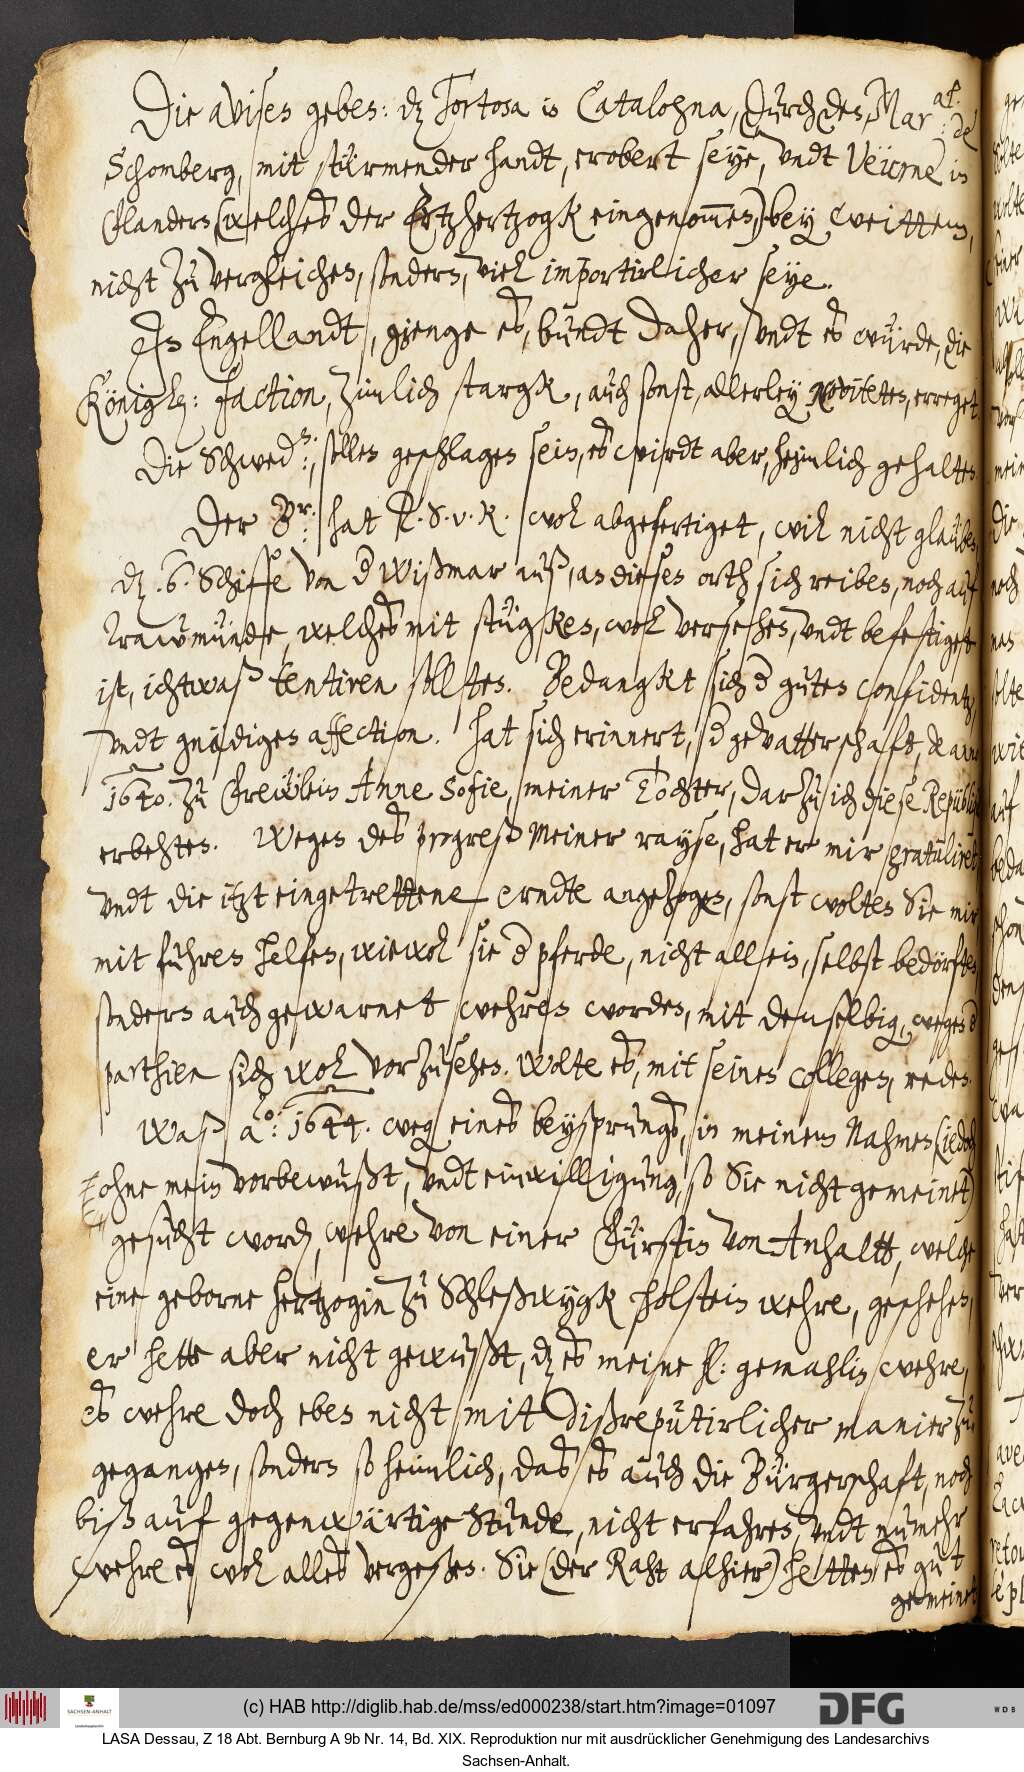 Die avisen geben: dz Tortosa in Catalohna, durch den Mar al. de
Schomberg, mit stürmender handt, erobert seye, vndt Veürne in
Flandern, (welches der Ertzhertzogk eingenom̅en,) bey weittem,
nicht zu vergleichen, sondern, viel importirlicher seye.
In Engellandt, gienge es, bundt daher, vndt es würde, die
Königl: faction, zimlich stargk, auch sonst, allerley novitetes, erreget
Die Schwed:, sollen geschlagen sein, es wirdt aber, heimlich gehalten
Der Br: hat T. S. v. K. wol abgefertiget, will nicht glauben,
dz. 6. Schiffe von d Wißmar auß, an dieses orth sich reiben, noch auf
Trawmünde, welches mit stügken, wol versehen, vndt befestiget
ist, ichtwaß tentiren sollten. Bedangkt sich d guten confidentz,
vndt gnädigen affection. Hat sich erinnert, d gevatterschaft, de anno
1640. zu Frewlein Anne Sofie, meiner Tochter, darzu ich diese Republ
erbehten. Wegen des progreß meiner rayse, hat er mir gratuliret
vndt die itzt eingetrettene erndte angezogen, sonst wolten Sie mir
mit fuhren helfen, wiewol sie d pferde, nicht allein, selbst bedörften
sondern auch gewarnet wehren worden, mit denselbig, wegen d
parthien sich wol vorzusehen. Wolte es, mit seinen collegen, reden.
Waß ao: 1644. weg eines beysprungs, in meinem Nahmen (iedoch
ohne mein vorbewußt, vndt einwilligung, so Sie nicht gemeinet)
gesucht word, wehre von einer Fürstin von Anhaltt, welche
eine geborne Hertzogin zu Schleßwygk Holstein wehre, geschehen,
er hette aber nicht gewußt, dz es meine h: gemahlin wehre,
es wehre doch eben nicht mit dißreputirlicher manier zu
gegangen, sondern so heimlich, das es auch die Bürgerschaft, noch
biß auf gegenwärtige Stunde, nicht erfahren, vndt numehr
wehre es wol alles vergeßen. Sie (der Raht alhier) hetten es gut
gemeinet
(c) HAB http://diglib.hab.de/mss/ed000238/start.htm?image=01097
SACHSEN-ANHALT
DFG
WDB
LASA Dessau, Z 18 Abt. Bernburg A 9b Nr. 14, Bd. XIX. Reproduktion nur mit ausdrücklicher Genehmigung des Landesarchivs
Sachsen-Anhalt.